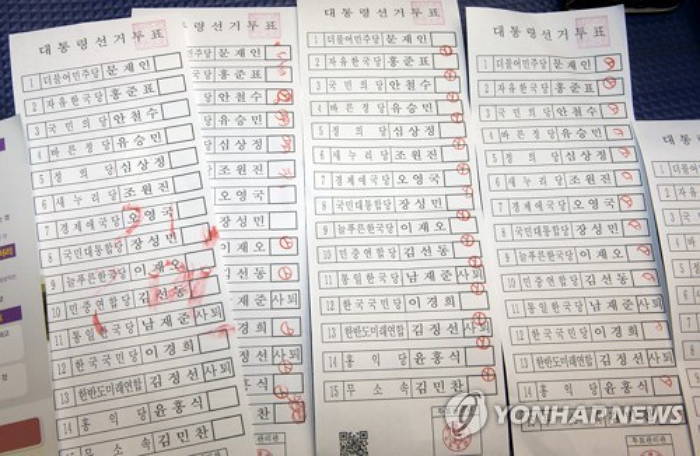 대통령선거투표
1 더불어민주당 문재인
2 자유한국당 홍준표
3 국민의당 안철수
4 바른정당 유승민
5 정의당 심상정
6 새누리당 조원진
7 경제애국당 오영국
8 국민대통합당 장성민
9 늘푸른한국당 이재오
10 민중연합당 김선동
11 통일한국당 남재준 사퇴
12 한국국민당 이경희
13 한반도미래연합 김정선 사퇴
14 홍익당 윤홍식
15 무소속 김민찬
통령선거투표
문재인
홍준표
안철수
유승민
심상정
조원진
오영국
장성민
이재오
김선동
재준 사퇴
경희
김정선
윤홍식
김민찬
대통령선거투표
1 더불어민주당 문재인
2 자유한국당 홍준표
3 국민의당 안철수
4 바른정당 유승민
5 정의당 심상정
6 새누리당 조원진
7 경제애국당 오영국
8 국민대통합당 장성민
9 늘푸른한국당 이재오
10 민중연합당 김선동
11 통일한국당 남재준 사퇴
12 한국국민당 이경희
13 한반도미래연합 김정선 사퇴
14 홍익당 윤홍식
15 무소속 김민찬
투표관리관
대통령선거투표
1 더불어민주당 문재인
2 자유한국당 홍준표
3 국민의당 안철수
4 바른정당 유승민
5 정의당 심상정
6 새누리당 조원진
7 경제애국당 오영국
8 국민대통합당 장성민
9 늘푸른한국당 이재오
10 민중연합당 김선동
11 통일한국당 남재준 사퇴
12 한국국민당 이경희
13 한반도미래연합 김정선 사퇴
14 홍익당 윤홍식
투표관리관
대통령
YONHAP NEWS